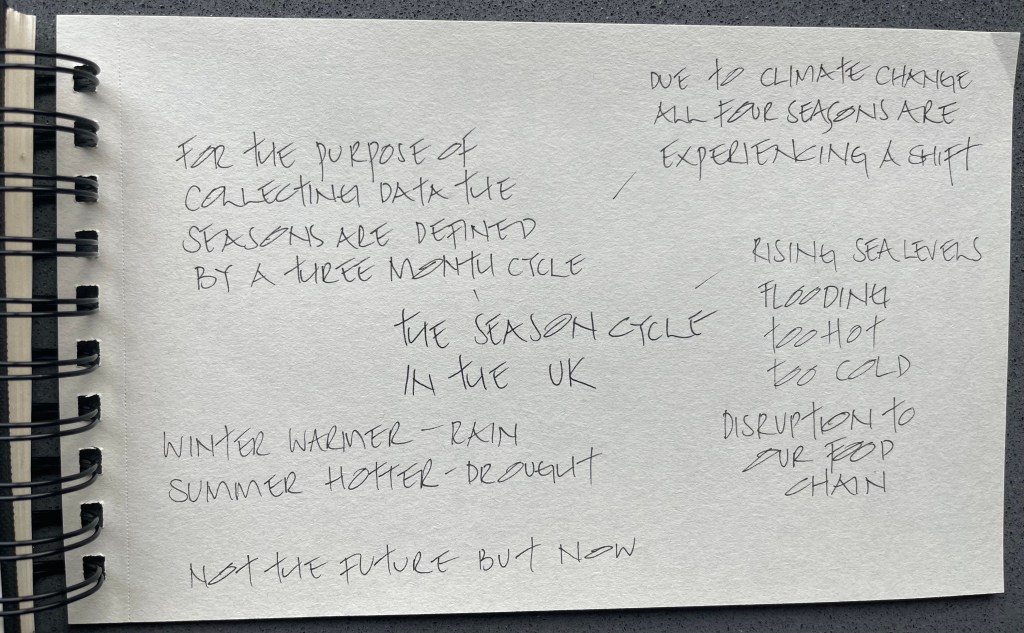 DUE TO CLIMATE CHANGE
ALL FOUR SEASONS ARE
EXPERIENCING A SHIFT
FOR THE PURPOSE OF
COLLECTING DATA THE
SEASONS ARE DEFINED
BY A THREE MONTH CYCLE
RISING SEA LEVELS
FLOODING
TOO HOT
TOO COLD
THE SEASON CYCLE
IN THE UK
DISRUPTION TO
OUR FOOD
CHAIN
WINTER WARMER - RAIN
SUMMER HOTTER - DROUGHT
NOT THE FUTURE BUT NOW